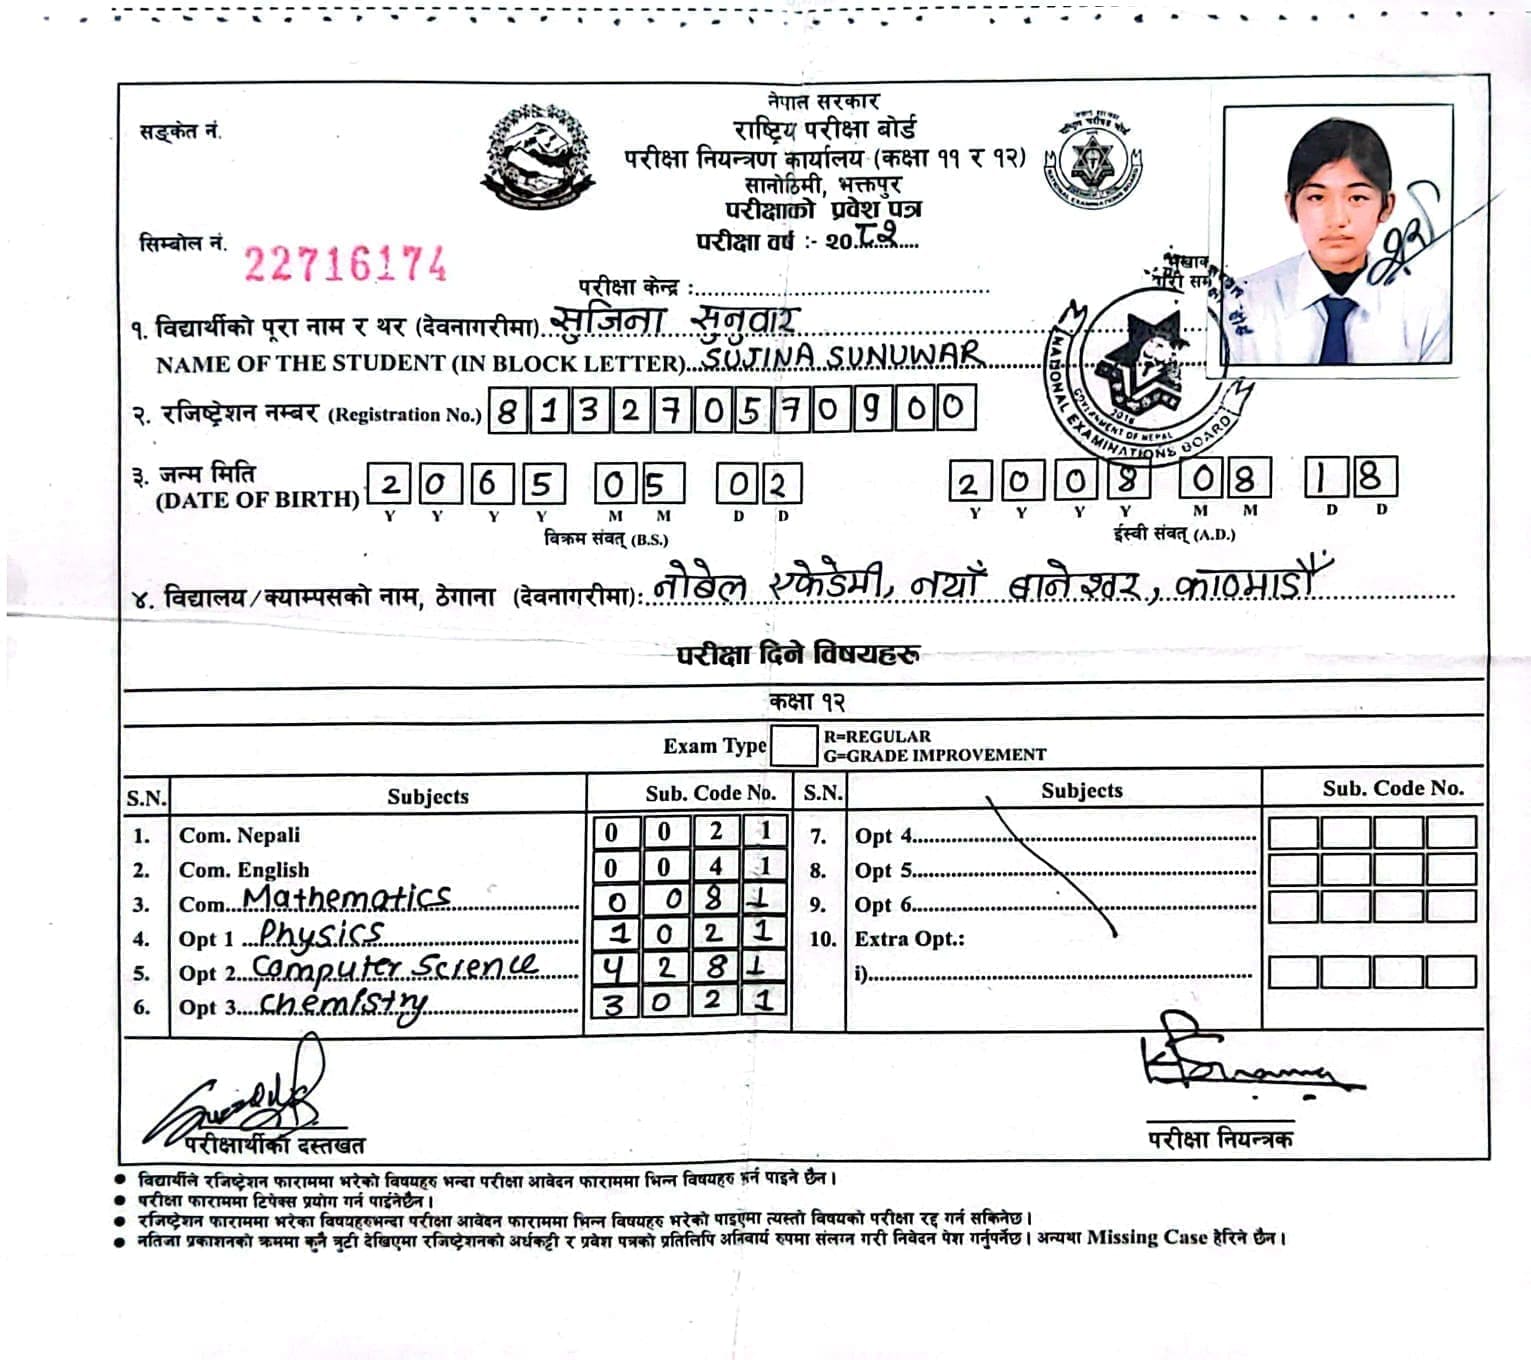 नेपाल सरकार
राष्ट्रिय परीक्षा बोर्ड
परीक्षा नियन्त्रण कार्यालय (कक्षा ११ र १२)
सानोठिमी, भक्तपुर
परीक्षाको प्रवेश पत्र
परीक्षा वर्ष :- २०८२
सङ्केत नं.
सिम्बोल नं. 22716174
परीक्षा केन्द्र :
१. विद्यार्थीको पूरा नाम र थर (देवनागरीमा) सुजिना सुनुवार
NAME OF THE STUDENT (IN BLOCK LETTER) SUJINA SUNUWAR
NATIONAL EXAMINATIONS BOARD
GOVERNMENT OF NEPAL
२. रजिष्ट्रेशन नम्बर (Registration No.) 8 1 3 2 7 0 5 7 0 9 0 0
३. जन्म मिति
(DATE OF BIRTH) 2 0 6 5 0 5 0 2 2 0 0 8 0 8 1 8
Y Y Y Y M M D D Y Y Y Y M M D D
विक्रम संवत् (B.S.) ईस्वी संवत् (A.D.)
४. विद्यालय/क्याम्पसको नाम, ठेगाना (देवनागरीमा): नोबेल एकेडेमी, नयाँ बानेश्वर, काठमाडौँ
परीक्षा दिने विषयहरू
कक्षा १२
Exam Type R=REGULAR
G=GRADE IMPROVEMENT
S.N. Subjects Sub. Code No. S.N. Subjects Sub. Code No.
1. Com. Nepali 0 0 2 1 7. Opt 4
2. Com. English 0 0 4 1 8. Opt 5
3. Com. Mathematics 0 0 8 1 9. Opt 6
4. Opt 1 Physics 1 0 2 1 10. Extra Opt.:
5. Opt 2 Computer Science 4 2 8 1 i)
6. Opt 3 Chemistry 3 0 2 1
परीक्षार्थीको दस्तखत परीक्षा नियन्त्रक
● विद्यार्थीले रजिष्ट्रेशन फाराममा भरेको विषयहरु भन्दा परीक्षा आवेदन फाराममा भिन्न विषयहरु भर्न पाइने छैन।
● परीक्षा फाराममा टिपेक्स प्रयोग गर्न पाईनेछैन।
● रजिष्ट्रेशन फाराममा भरेका विषयहरुभन्दा परीक्षा आवेदन फाराममा भिन्न विषयहरु भरेको पाइएमा त्यस्तो विषयको परीक्षा रद्द गर्न सकिनेछ।
● नतिजा प्रकाशनको क्रममा कुनै त्रुटी देखिएमा रजिष्ट्रेशनको अर्धकट्टी र प्रवेश पत्रको प्रतिलिपि अनिवार्य रुपमा संलग्न गरी निवेदन पेश गर्नुपर्नेछ। अन्यथा Missing Case हेरिने छैन।